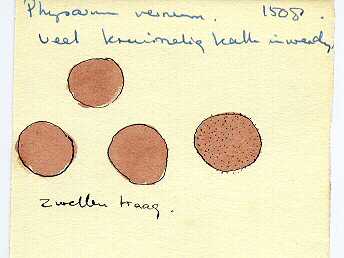 Physarum vernum. 1508.
veel kruimelig kalk inwendig,
zwellen traag.